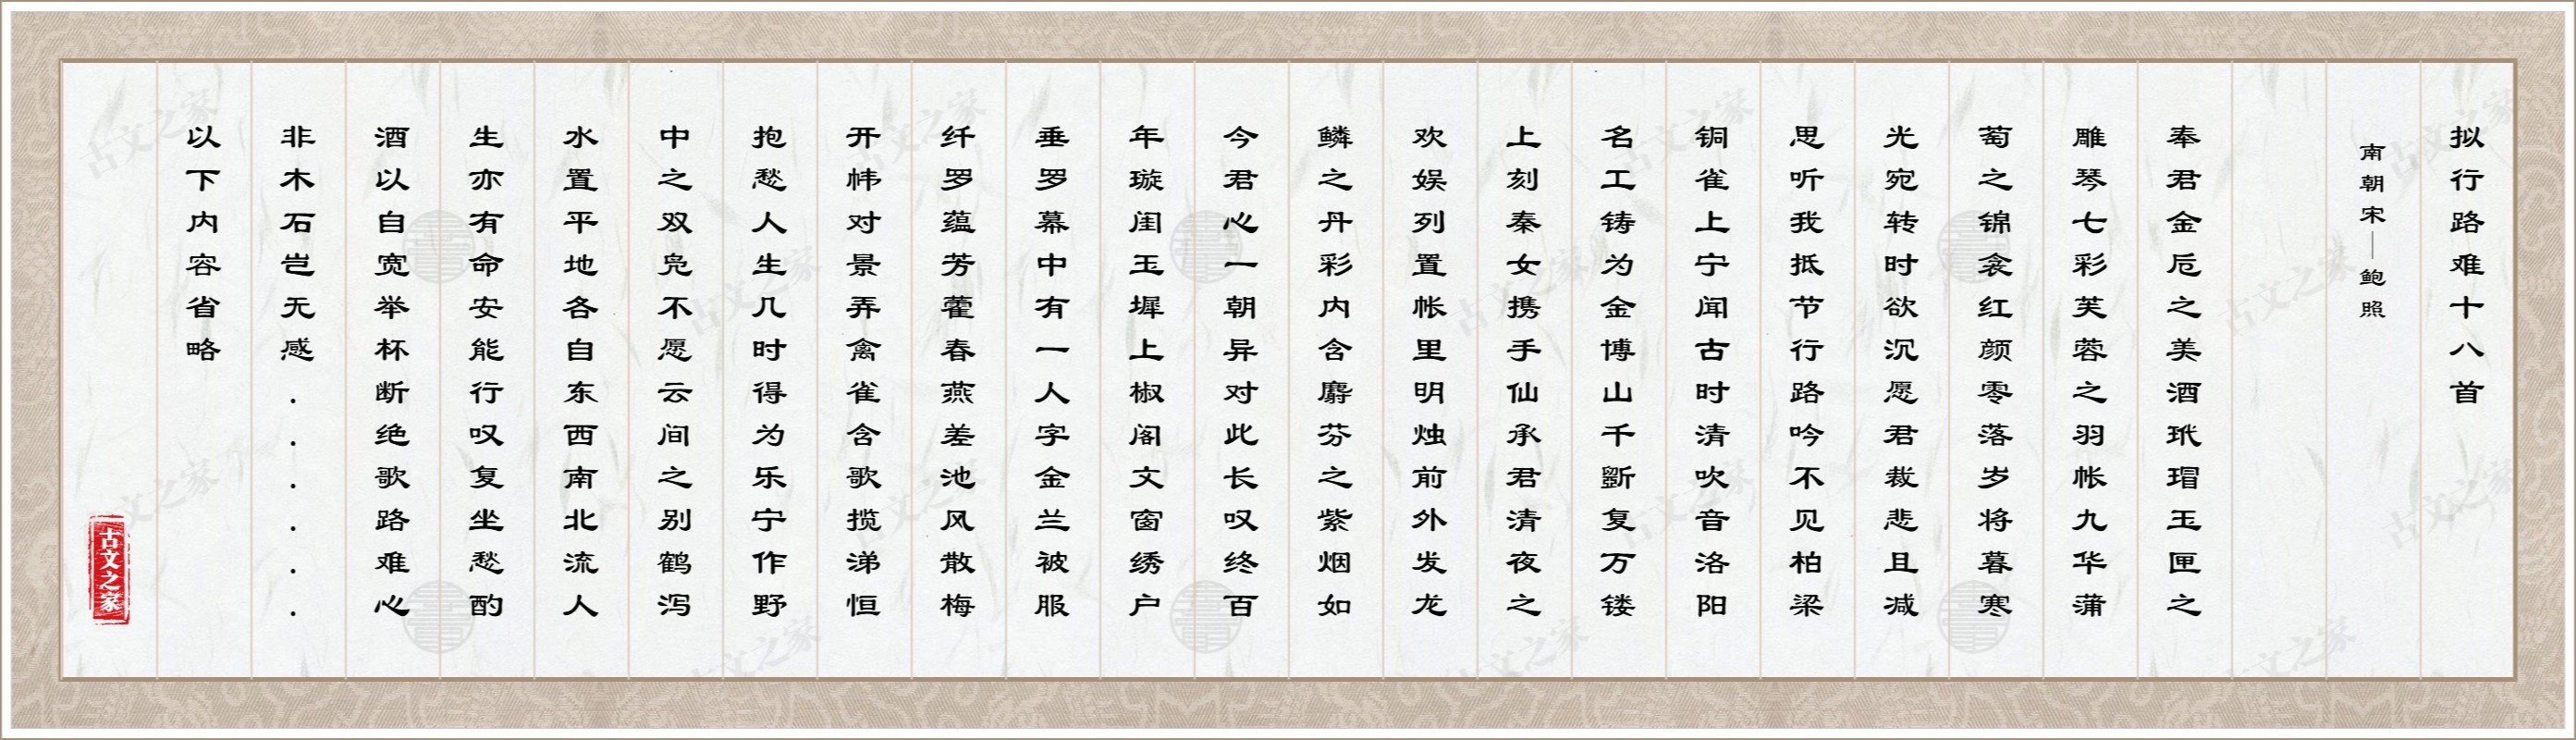 拟行路难十八首
南朝宋—鲍照
奉君金卮之美酒玳瑁玉匣之
雕琴七彩芙蓉之羽帐九华蒲
萄之锦衾红颜零落岁将暮寒
光宛转时欲沉愿君裁悲且减
思听我抵节行路吟不见柏梁
铜雀上宁闻古时清吹音洛阳
名工铸为金博山千斲复万镂
上刻秦女携手仙承君清夜之
欢娱列置帐里明烛前外发龙
鳞之丹彩内含麝芬之紫烟如
今君心一朝异对此长叹终百
年璇闺玉墀上椒阁文窗绣户
垂罗幕中有一人字金兰被服
纤罗蕴芳藿春燕差池风散梅
开帏对景弄禽雀含歌揽涕恒
抱愁人生几时得为乐宁作野
中之双凫不愿云间之别鹤泻
水置平地各自东西南北流人
生亦有命安能行叹复坐愁酌
酒以自宽举杯断绝歌路难心
非木石岂无感......
以下内容省略
古文之家